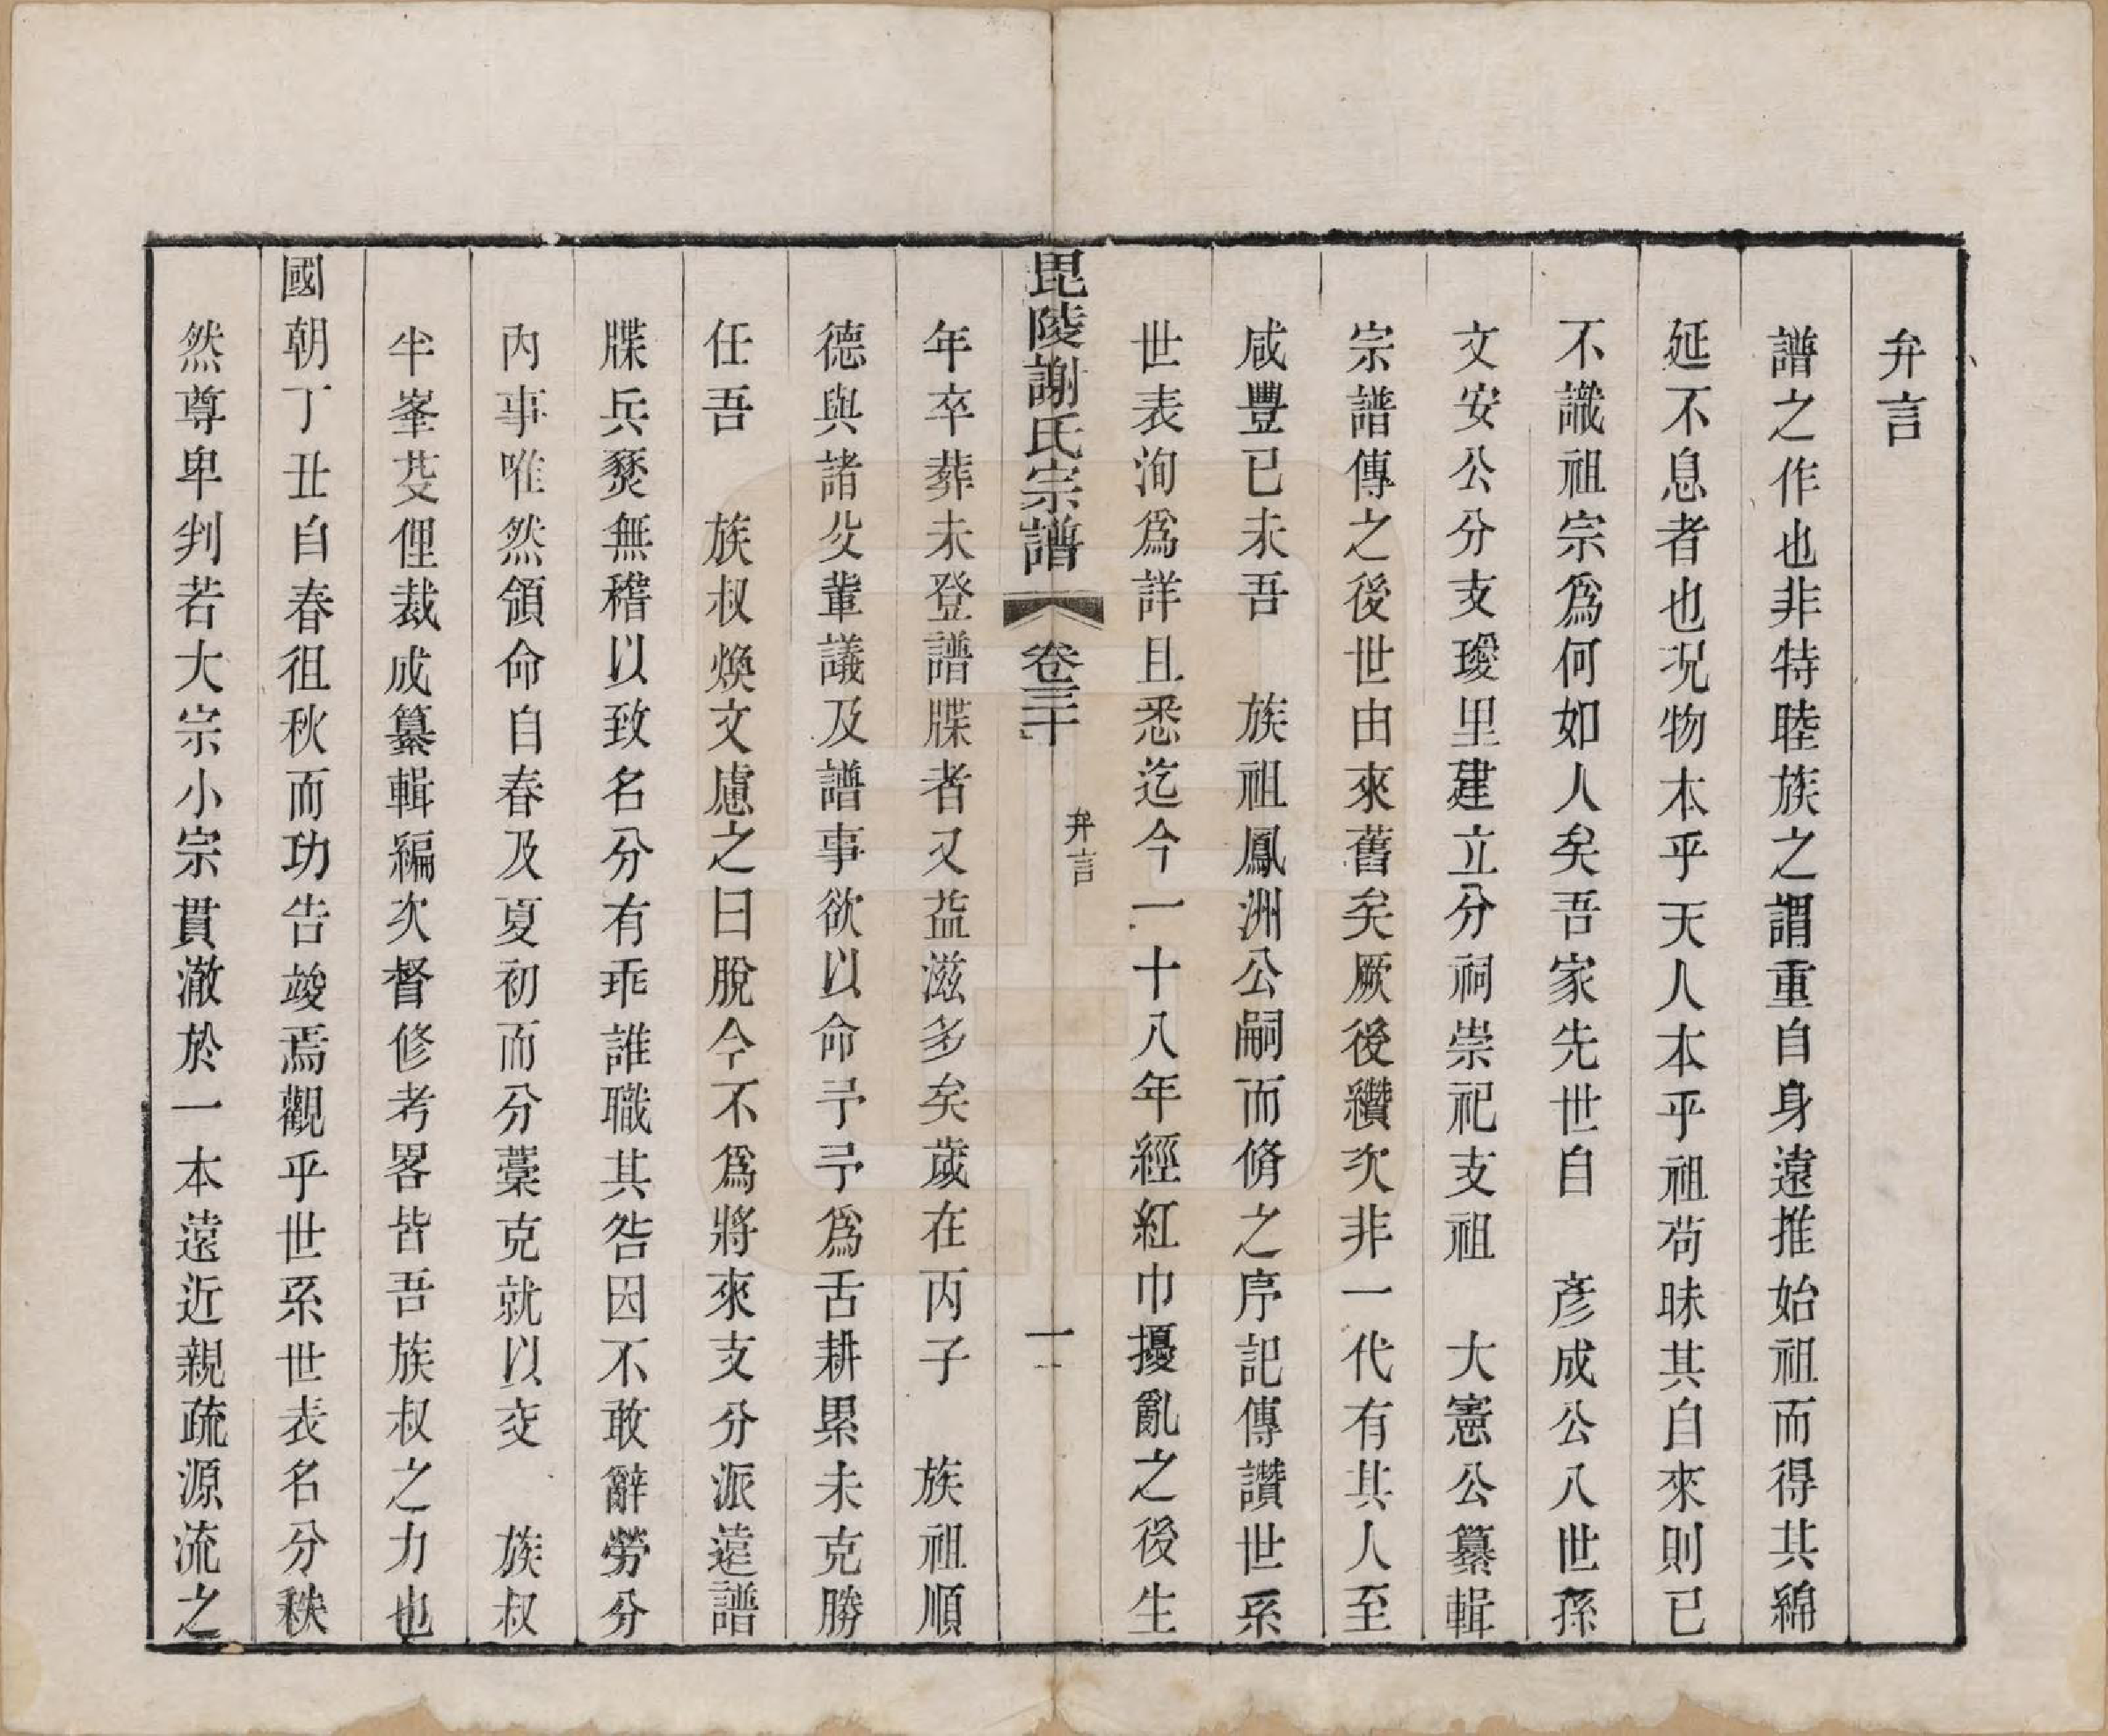 弁言
譜之作也非特睦族之謂重自身遠推始祖而得其綿
延不息者也况物本乎天人本乎祖苟昧其自來則已
不識祖宗爲何如人矣吾家先世自　彥成公八世孫
文安公分支璦里建立分祠崇祀支祖　大憲公纂輯
宗譜傳之後世由來舊矣厥後纘次非一代有其人至
咸豐已未吾　族祖鳳洲公嗣而脩之序記傳讚世系
世表洵爲詳且悉迄今一十八年經紅巾擾亂之後生
毘陵謝氏宗譜　卷三十　弁言　一
年卒葬未登譜牒者又益滋多矣歲在丙子　族祖順
德與諸父輩議及譜事欲以命予予爲舌耕累未克勝
任吾　族叔煥文慮之曰脫今不爲將來支分派遠譜
牒兵燹無稽以致名分有乖誰職其咎因不敢辭勞分
內事唯然領命自春及夏初而分藁克就以交　族叔
半峯芟俚裁成纂輯編次督修考畧皆吾族叔之力也
國朝丁丑自春徂秋而功告竣焉觀乎世系世表名分秩
然尊卑判若大宗小宗貫澈於一本遠近親疏源流之